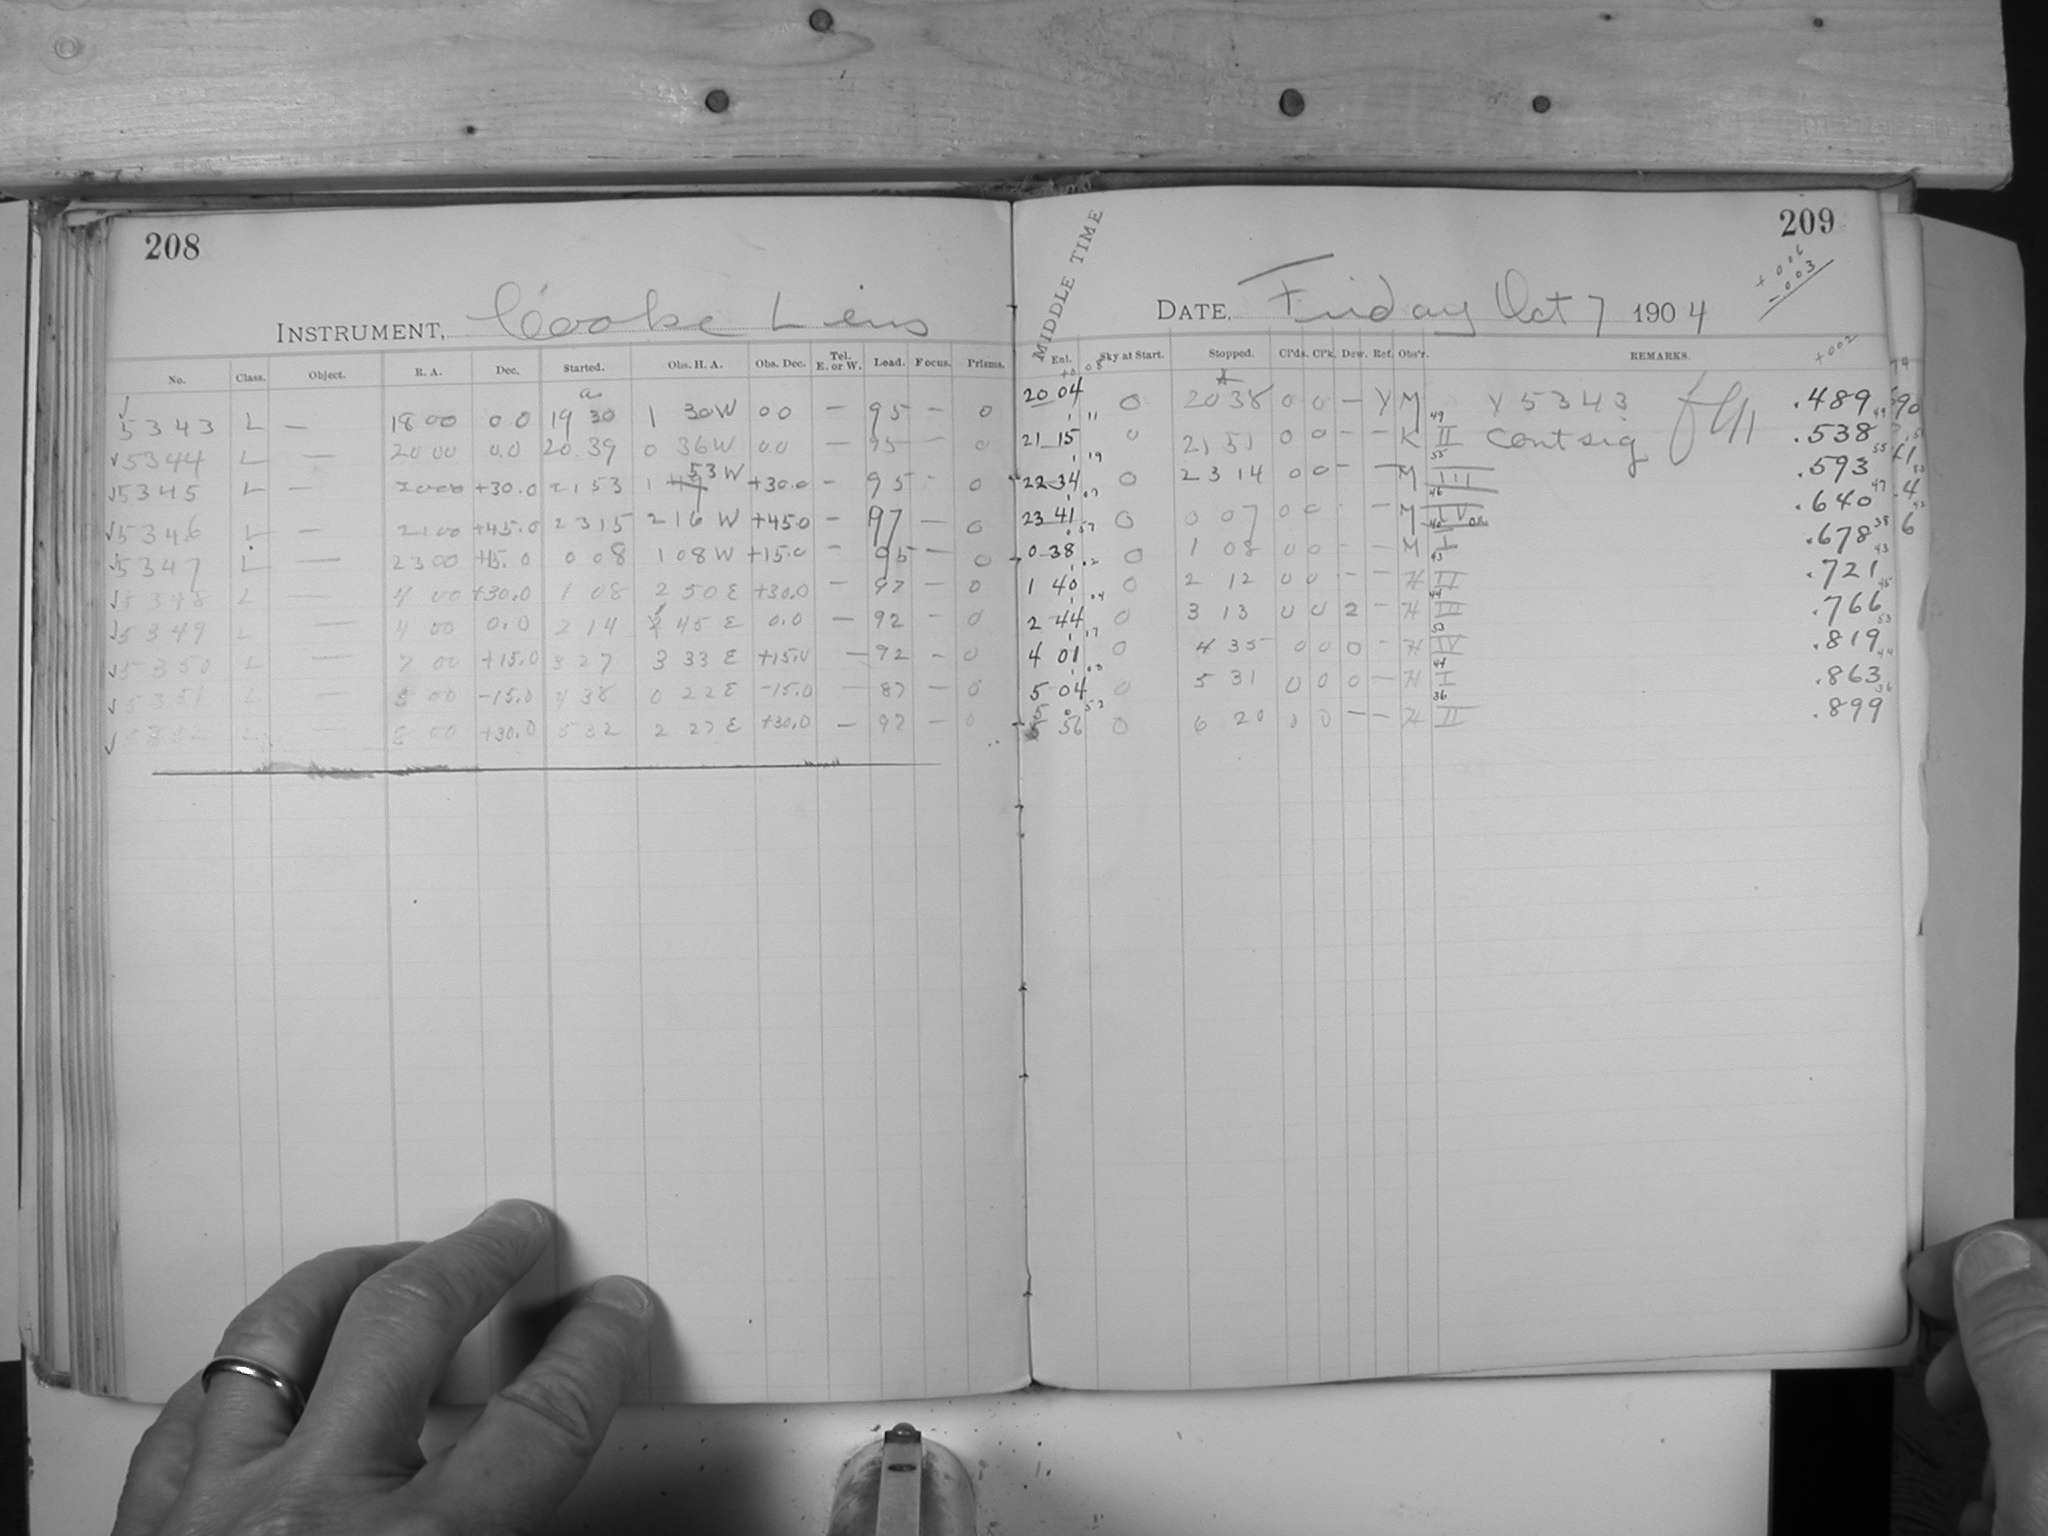 208
INSTRUMENT, Cooke Lens
No. Class. Object. R. A. Dec. Started. Obs. H. A. Obs. Dec. Tel. E. or W. Load. Focus. Prisms.
a
5343 L — 18 00 0 0 19 30 1 30 W 0 0 — 95 — 0
5344 L — 20 00 0.0 20 39 0 36 W 0.0 — 95 — 0
5345 L — 20 00 +30.0 21 53 1 53 W +30.0 — 95 - 0
5346 L — 21 00 +45.0 23 15 2 16 W +45.0 - 97 — 0
5347 L — 23 00 +15.0 0 08 1 08 W +15.0 - 95 — 0
5348 L — 4 00 +30.0 1 08 2 50 E +30.0 - 97 — 0
5349 L — 4 00 0.0 2 14 1 45 E 0.0 — 92 — 0
5350 L — 7 00 +15.0 3 27 3 33 E +15.0 — 92 - 0
5351 L — 5 00 -15.0 4 38 0 22 E -15.0 — 87 — 0
L — 8 00 +30.0 5 32 2 27 E +30.0 — 97 — 0
209
+006
-003
MIDDLE TIME
DATE, Friday Oct 7 1904
Ent. Sky at Start. Stopped. Cl'ds. Cl'k. Dew. Ref. Obs'r. REMARKS.
+002
20 04 0 20 38 0 0 — Y M Y 5343 .489
21 15 0 21 51 0 0 - - K II Cent sig .538
22 34 0 23 14 0 0 - — M III .593
23 41 0 0 07 0 0 - — M IV .640
0 38 0 1 08 0 0 - - M I .678
1 40 0 2 12 0 0 - - H II .721
2 44 0 3 13 0 0 2 - H III .766
4 01 0 4 35 0 0 0 - H IV .819
5 04 0 5 31 0 0 0 — H I .863
5 56 0 6 20 0 0 — — H II .899